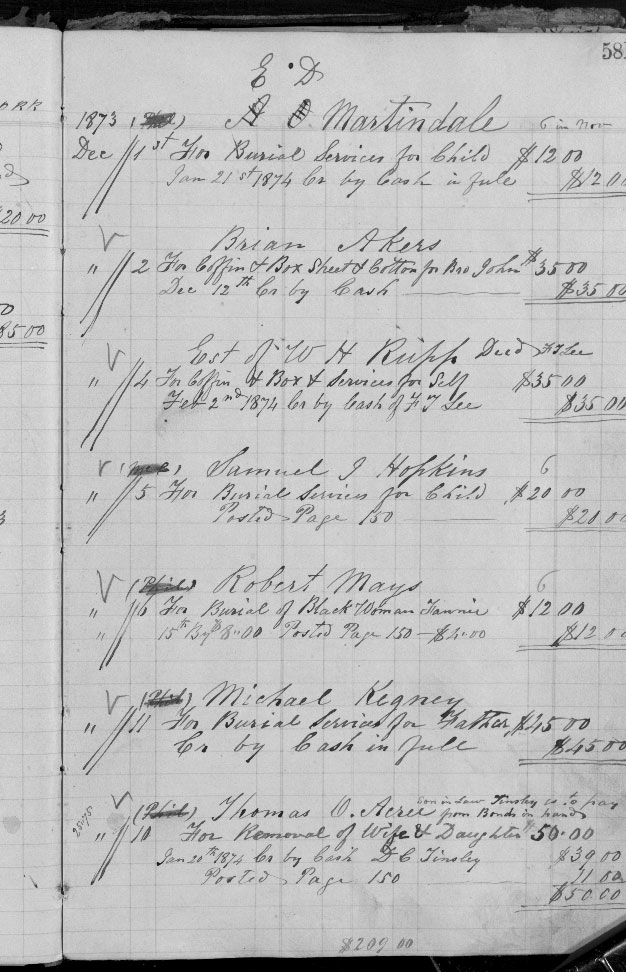 581
E. D
1873 A O Martindale 6 in Nov
Dec // 1st For Burial Services for Child $12 00
Jan 21st 1874 Cr by Cash in full $12 00
Brian Akers
" // 2 For Coffin & Box Sheet & Cotton for Bro John $35 00
Dec 12th Cr by Cash $35 00
Est of W H Rupp Decd F T Lee
" // 4 For Coffin & Box & Services for Self $35 00
Feb 2nd 1874 Cr by Cash of F T Lee $35 00
Samuel J Hopkins 6
" // 5 For Burial Services for Child $20 00
Posted Page 150 $20 00
(Phil) Robert Mays 6
" // 6 For Burial of Black Woman $12 00
" 15th 8.00 Posted Page 150 - $4.00 $12 0
(Phil) Michael Kegney
" // 11 For Burial Services for Father $45 00
Cr by Cash in full $45 00
(Phil) Thomas O. Acree Son in Law Tinsley is to pay
from Bonds in hand
" // 10 For Removal of Wife & Daughter $50.00
Jan 20th 1874 Cr by Cash D C Tinsley $39 00
Posted Page 150 11 00
$50.00
$209 00
ORK
20 00
85.00